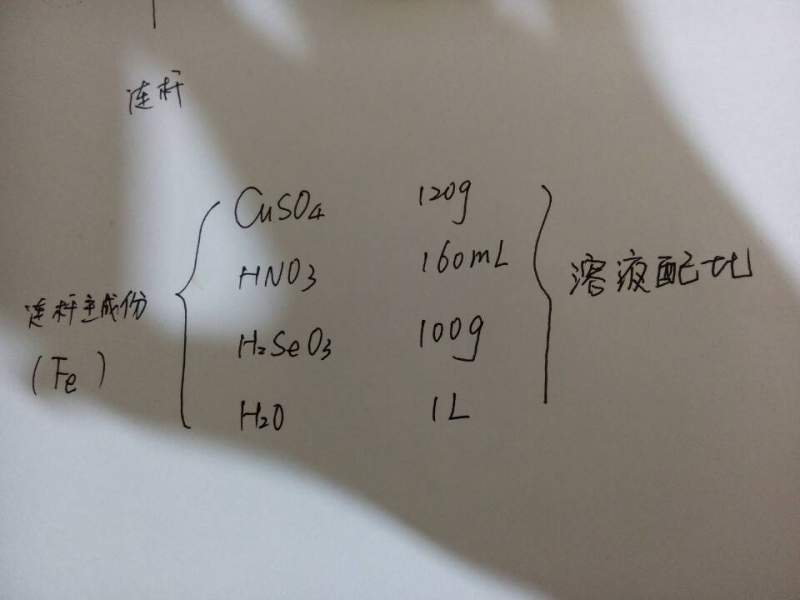 连杆
CuSO4 120g
HNO3 160mL
溶液配比
连杆主成份
H2SeO3 100g
(Fe)
H2O 1L